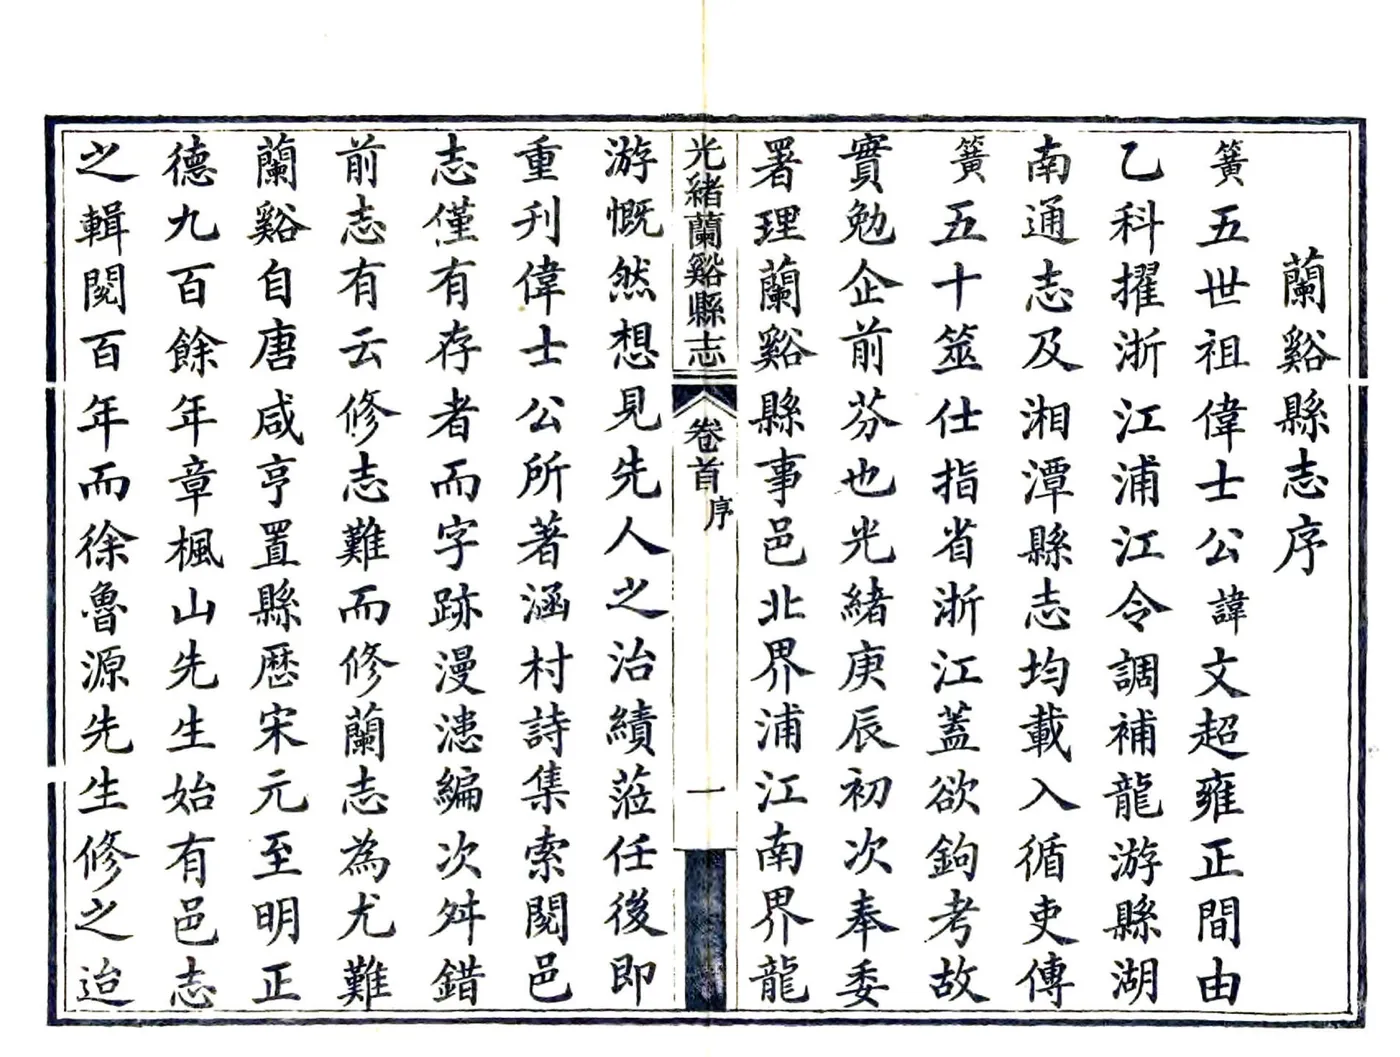 蘭谿縣志序
簧五世祖偉士公諱文超雍正間由
乙科擢浙江浦江令調補龍游縣湖
南通志及湘潭縣志均載入循吏傳
簧五十筮仕指省浙江蓋欲鉤考故
實勉企前芬也光緒庚辰初次奉委
署理蘭谿縣事邑北界浦江南界龍
光緒蘭谿縣志
卷首
序
一
游慨然想見先人之治績蒞任後即
重刋偉士公所著涵村詩集索閱邑
志僅有存者而字跡漫漶編次舛錯
前志有云修志難而修蘭志為尤難
蘭谿自唐咸亨置縣歷宋元至明正
德九百餘年章楓山先生始有邑志
之輯閱百年而徐魯源先生修之迨